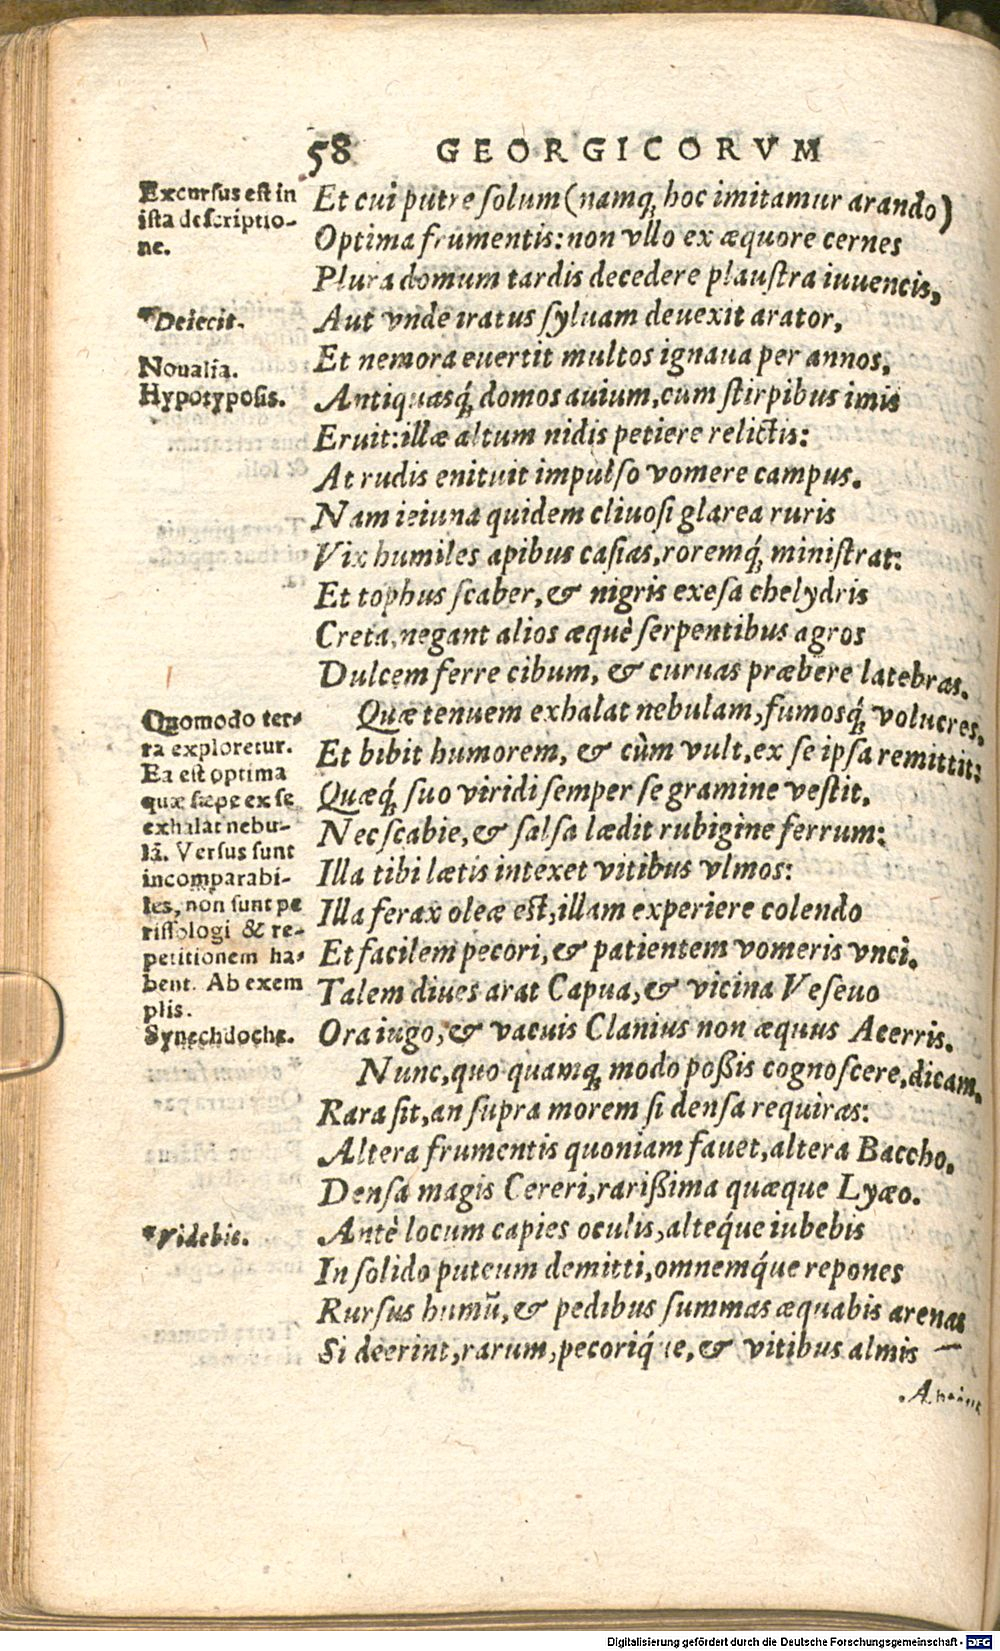 58 GEORGICORVM
Excursus est in
ista descriptio-
ne.
Et cui putre solum (namq; hoc imitamur arando)
Optima frumentis: non vllo ex æquore cernes
Plura domum tardis decedere plaustra iuuencis,
*Deiecit.
Aut vnde iratus syluam deuexit arator,
Et nemora euertit multos ignaua per annos,
Noualia.
Hypotyposis.
Antiquasq́; domos auium, cum stirpibus imis
Eruit: illæ altum nidis petiere relictis:
At rudis enituit impulso vomere campus.
Nam ieiuna quidem cliuosi glarea ruris
Vix humiles apibus casias, roremq́; ministrat:
Et tophus scaber, & nigris exesa chelydris
Creta, negant alios æquè serpentibus agros
Dulcem ferre cibum, & curuas præbere latebras.
Quæ tenuem exhalat nebulam, fumosq́; volucres,
Et bibit humorem, & cùm vult, ex se ipsa remittit:
Quæq́; suo viridi semper se gramine vestit,
Nec scabie, & salsa lædit rubigine ferrum:
Illa tibi lætis intexet vitibus vlmos:
Illa ferax oleæ est, illam experiere colendo
Et facilem pecori, & patientem vomeris vnci.
Talem diues arat Capua, & vicina Veseuo
Ora iugo, & vacuis Clanius non æquus Acerris.
Quomodo ter-
ra exploretur.
Ea est optima
quæ sæpe ex se
exhalat nebu-
lā. Versus sunt
incomparabi-
les, non sunt pe
rissologi & re-
petitionem ha-
bent. Ab exem
plis.
Synechdoche.
Nunc, quo quamq; modo poßis cognoscere, dicam.
Rara sit, an supra morem si densa requiras:
Altera frumentis quoniam fauet, altera Baccho.
Densa magis Cereri, rarißima quæque Lyæo.
*Videbis.
Antè locum capies oculis, alteq́ue iubebis
In solido puteum demitti, omnemq́ue repones
Rursus humū, & pedibus summas æquabis arenas
Si deerint, rarum, pecoriq́ue, & vitibus almis
Digitalisierung gefördert durch die Deutsche Forschungsgemeinschaft - DFG